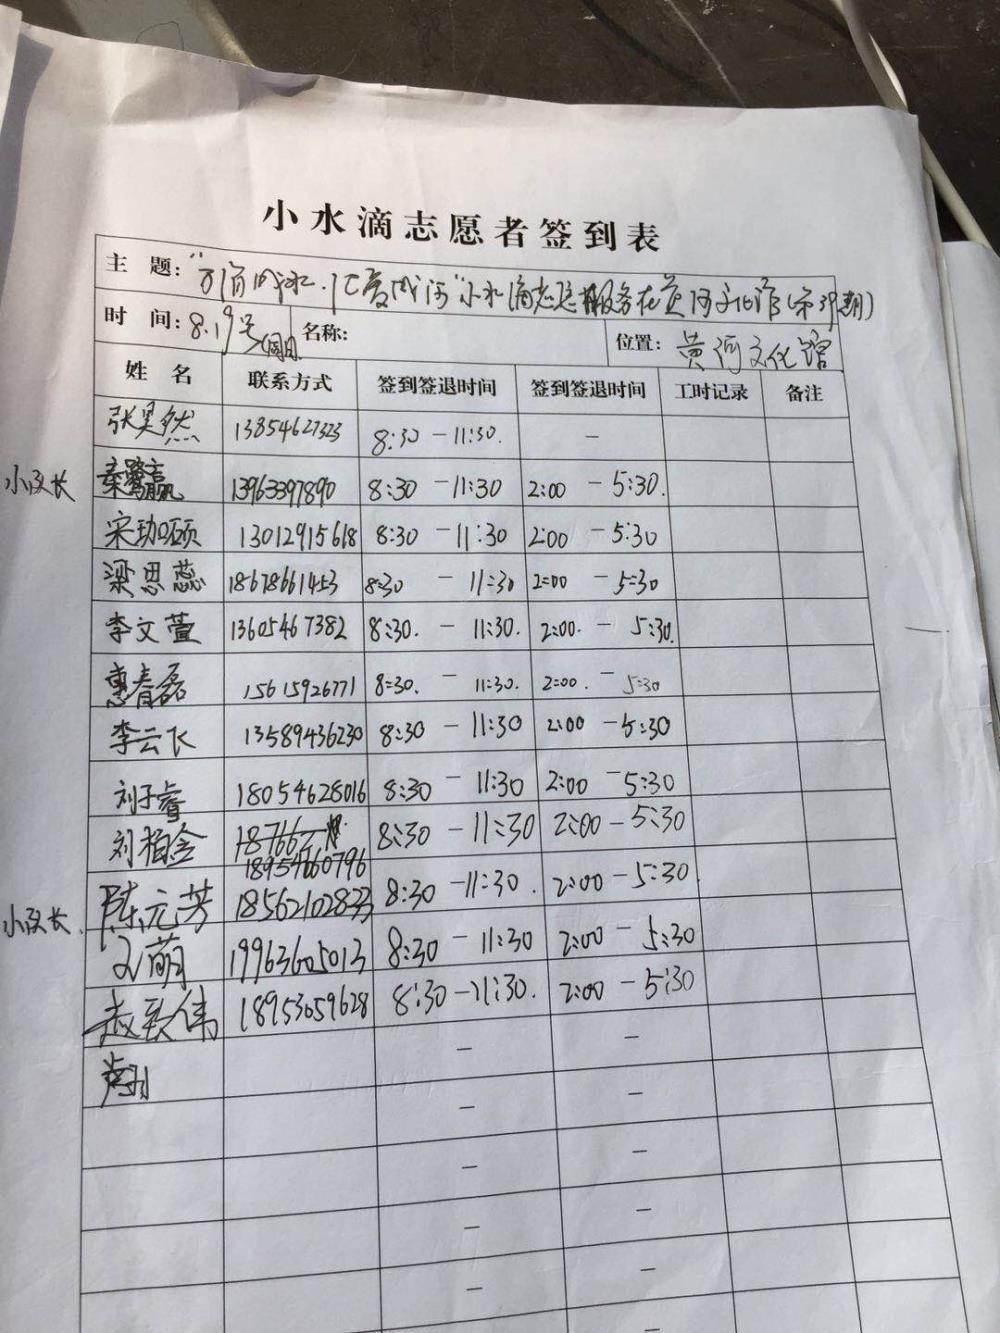 小水滴志愿者签到表
主 题：“万滴成冰·汇爱成河”小水滴志愿服务在黄河文化馆（第39期）
时 间：8.19号（周日） 名称： 位置：黄河文化馆
姓 名 联系方式 签到签退时间 签到签退时间 工时记录 备注
张昊然 13854627323 8:30 －11:30. －
小队长 秦鹭赢 13963397890 8:30 －11:30 2:00 － 5:30.
宋玏颐 13012915618 8:30 － 11:30 2:00 － 5:30
梁思蕊 18678661453 8:30 － 11:30 2:00 － 5:30
李文萱 13605467382 8:30. － 11:30. 2:00. － 5:30.
惠春磊 15615926771 8:30. － 11:30. 2:00. － 5:30
李云飞 13589436230 8:30 － 11:30 2:00 －5:30
刘子睿 18054628016 8:30 － 11:30 2:00 － 5:30
刘柏含 8:30 －11:30 2:00 － 5:30
18954660796
小队长. 陈元芳 18562102833 8:30 －11:30. 2:00 － 5:30
萌 19963605013 8:30 － 11:30 2:00 － 5:30
赵致伟 18953659628 8:30 －11:30. 2:00 － 5:30
－ －
－ －
－ －
－ －
－ －